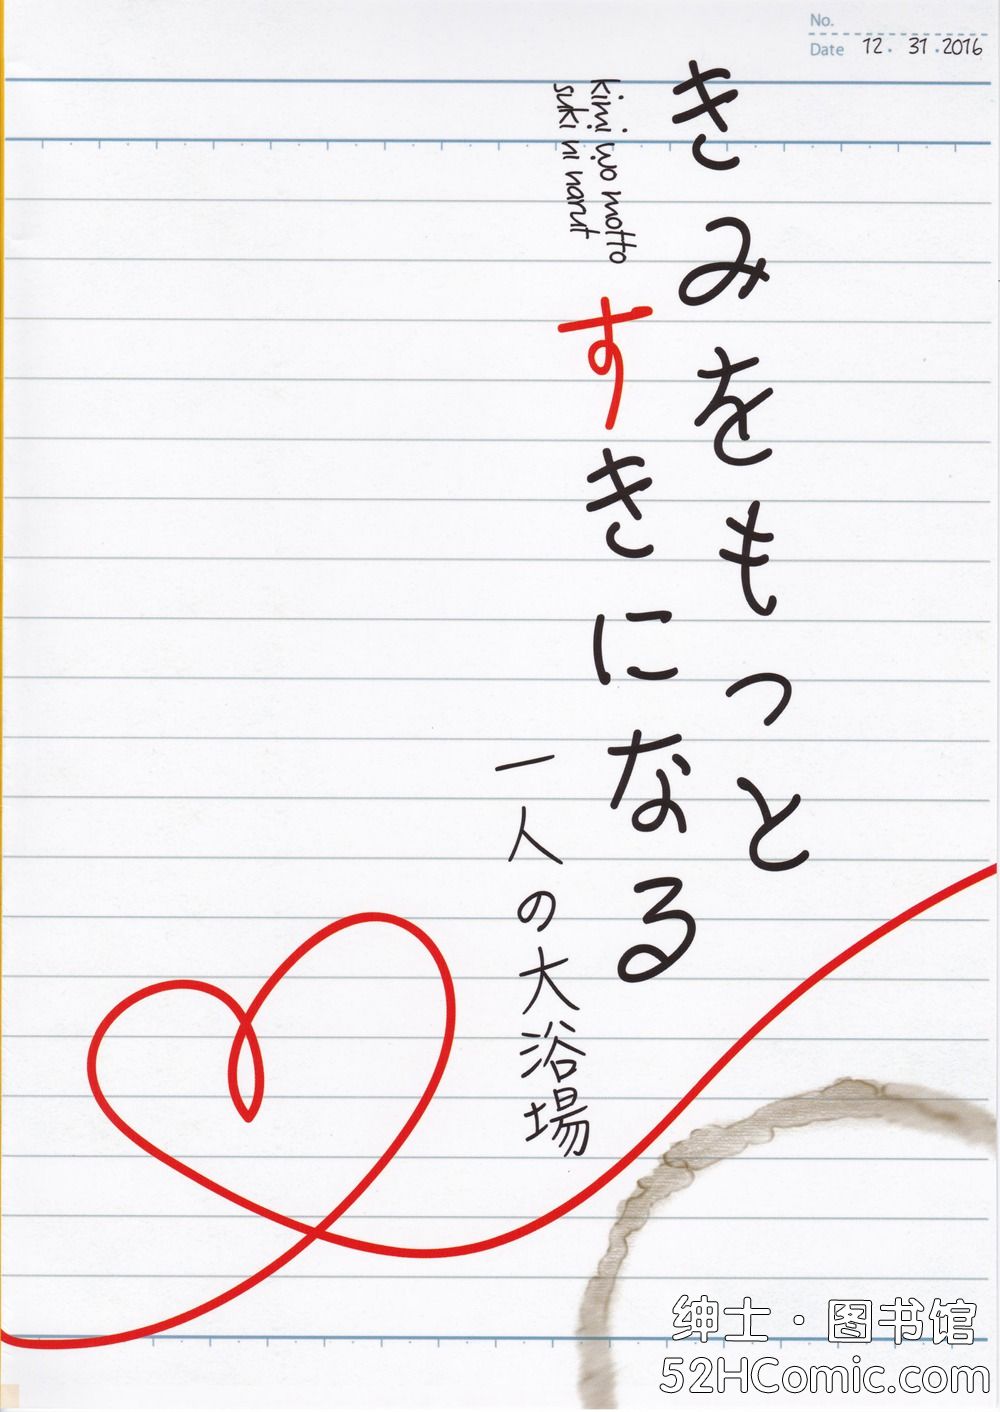 No.
Date 12・31・2016
きみをもっと
kimi wo motto
suki ni narut
すきになる
一人の大浴場
绅士・图书馆
52HComic.com